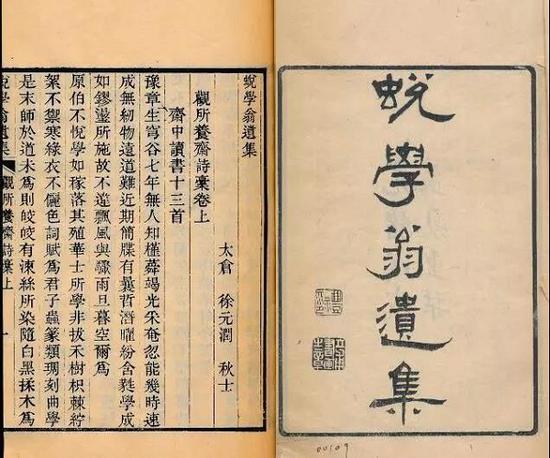 蛻學翁遺集
00109
蛻學翁遺集
太倉 徐元潤 秋士
觀所養齋詩稾卷上
齋中讀書十三首
豫章生穹谷七年無人知槿蕣竭光采奄忽能幾時速
成無紉物遠道難近期簡牒有曩哲濳曜紛含甤學成
如鏐鋈所施故不逶飄風與驟雨旦暮空爾爲
原伯不悅學如稼落其殖華士所學非拔禾樹枳棘紵
絮不禦寒綠衣不儷色詞賦爲君子蟲篆類琱刻曲學
是末師於道未爲則皎皎有湅絲所染隨白黑揉木爲
蛻學翁遺集 觀所養齋詩稾上 一